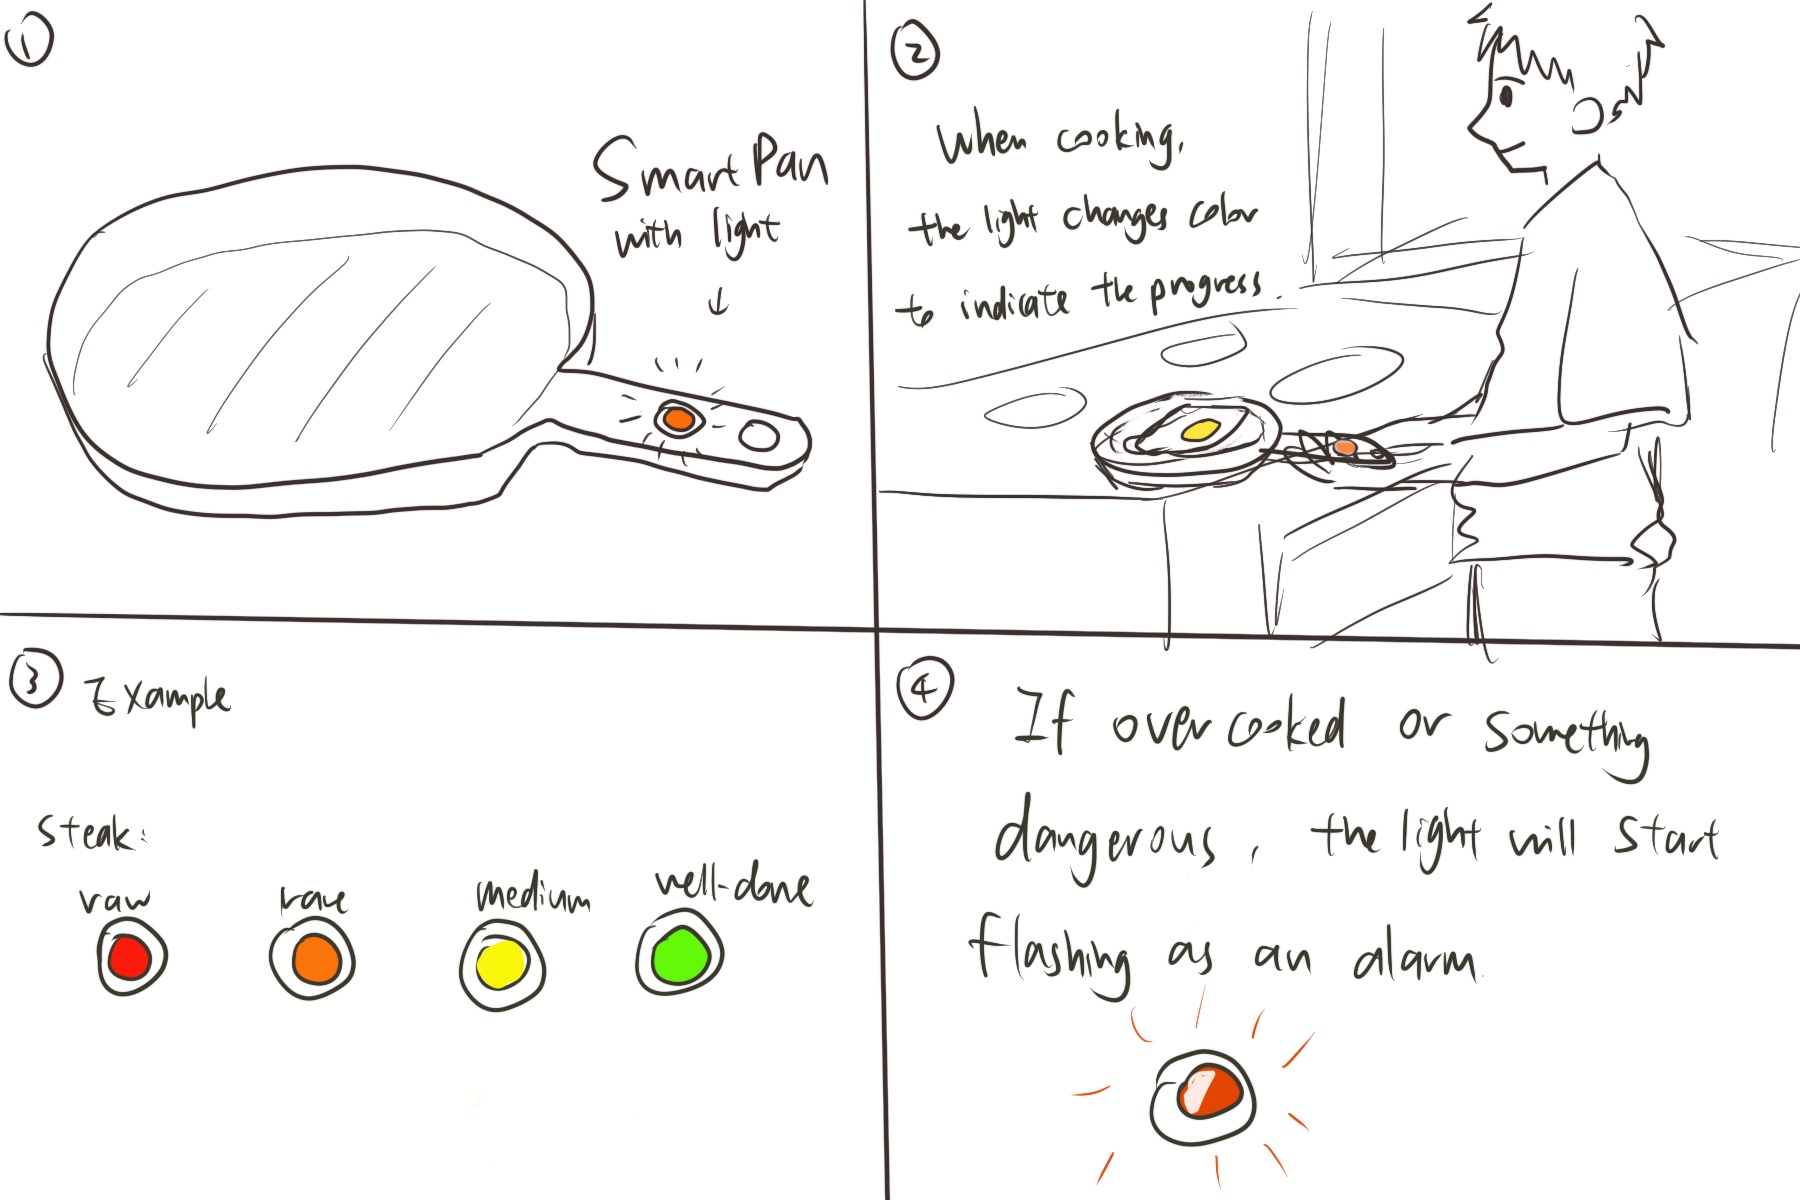 ①
Smart Pan
with light
②
When cooking,
the light changes color
to indicate the progress.
③ Example
Steak:
raw rare medium well-done
④
If overcooked or something
dangerous, the light will start
flashing as an alarm.